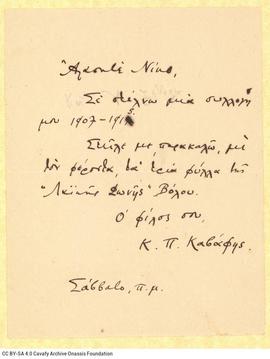 Ἀγαπητὲ Νῖκο,
Σὲ στέλνω μιὰ συλλογή
μου 1907-1915.
Στεῖλε με, παρακαλῶ, μὲ
τὸν φέροντα, τὰ τρία φύλλα τῆς
"Λαϊκῆς Φωνῆς" Βόλου.
Ὁ φίλος σου,
Κ. Π. Καβάφης.
Σάββατο, π.μ.
CC BY-SA 4.0 Cavafy Archive Onassis Foundation